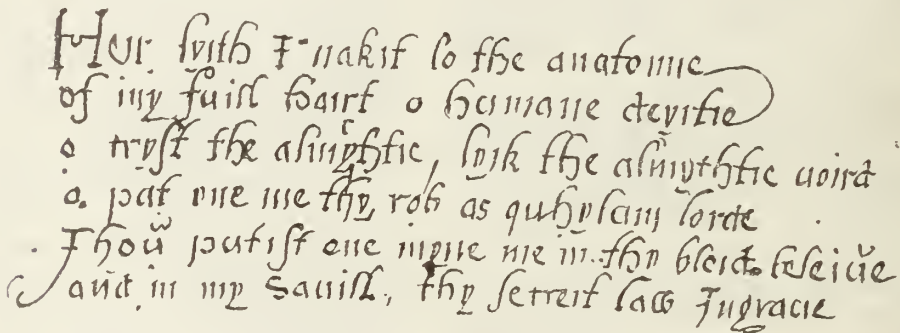 Heir lyith I nakit lo the anatomie
of my fuill hairt o humane deyitie
o tryst the almychtie, lyik the almythtie word
o put one me thy rob as quhylam lorde
Thow putist one myne me in thy bleid beleive
and in my sauill, thy secreit law Ingrave